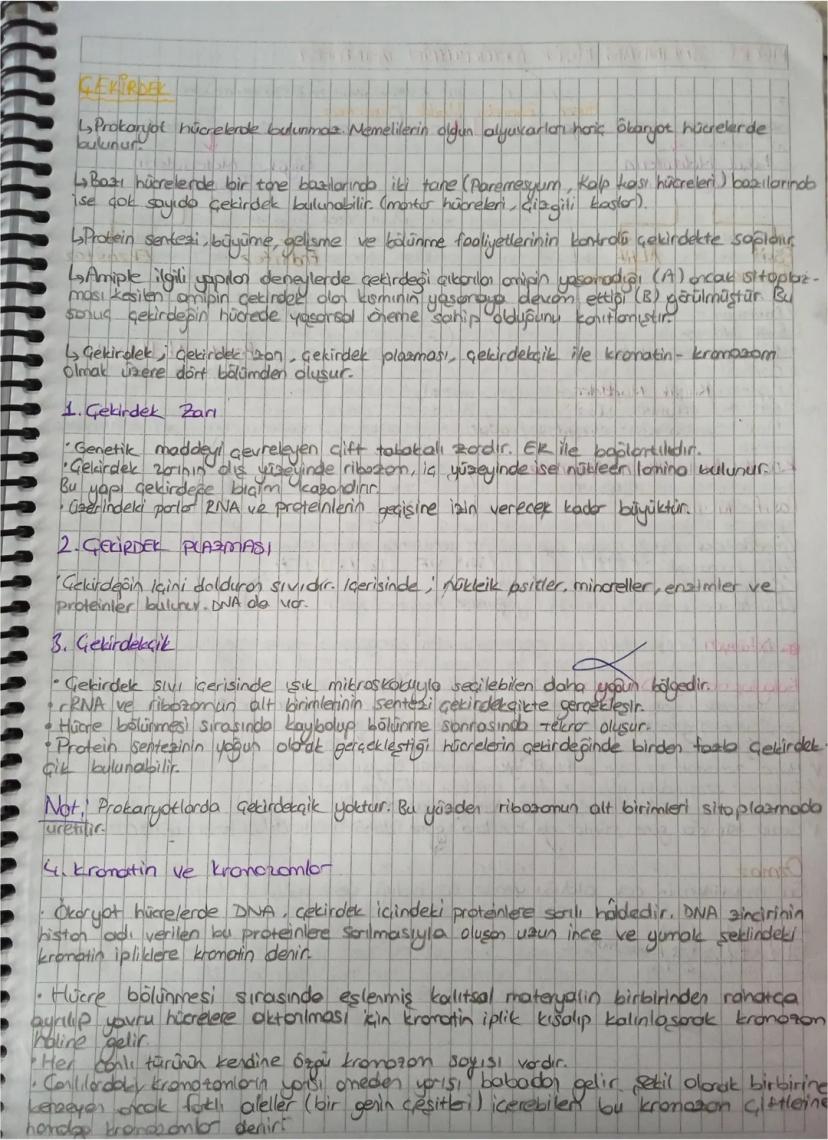 ÇEKİRDEK
↳Prokaryot hücrelerde bulunmaz. Memelilerin olgun alyuvarları hariç ökaryot hücrelerde
bulunur.
↳Bazı hücrelerde bir tane bazılarında iki tane (Paremesyum, Kalp kası hücreleri) bazılarında
ise çok sayıda çekirdek bulunabilir. (mantar hücreleri, çizgili kaslar).
↳Protein sentezi, büyüme, gelişme ve bölünme faaliyetlerinin kontrolü çekirdekte sağlanır.
↳Amiple ilgili yapılan deneylerde çekirdeği çıkarılan amipin yaşamadığı (A) ancak sitoplaz-
ması kesilen amipin çekirdek olan kısmının yaşamaya devam ettiği (B) görülmüştür. Bu
sonuç çekirdeğin hücrede yaşarsal öneme sahip olduğunu kanıtlamıştır.
↳Çekirdek; çekirdek zarı, çekirdek plazması, çekirdekçik ile kromatin-kromozom
olmak üzere dört bölümden oluşur.
1. Çekirdek Zarı
• Genetik maddeyi çevreleyen çift tabakalı zardır. ER ile bağlantılıdır.
• Çekirdek zarının dış yüzeyinde ribozom, iç yüzeyinde ise nükleer lamina bulunur.
Bu yapı çekirdeğe biçim kazandırır.
• Üzerindeki porlar RNA ve proteinlerin geçişine izin verecek kadar büyüktür.
2. ÇEKİRDEK PLAZMASI
• Çekirdeğin içini dolduran sıvıdır. İçerisinde; nükleik asitler, mineraller, enzimler ve
proteinler bulunur. DNA da var.
3. Çekirdekçik
• Çekirdek sıvı içerisinde ışık mikroskobuyla seçilebilen daha yoğun bölgedir.
• rRNA ve ribozomun alt birimlerinin sentezi çekirdekçikte gerçekleşir.
• Hücre bölünmesi sırasında kaybolup bölünme sonrasında tekrar oluşur.
• Protein sentezinin yoğun olarak gerçekleştiği hücrelerin çekirdeğinde birden fazla çekirdek-
çik bulunabilir.
Not: Prokaryotlarda çekirdekçik yoktur. Bu yüzden ribozomun alt birimleri sitoplazmada
üretilir.
4. Kromatin ve kromozomlar
• Ökaryot hücrelerde DNA, çekirdek içindeki proteinlere sarılı hâldedir. DNA zincirinin
histon adı verilen bu proteinlere sarılmasıyla oluşan uzun ince ve yumak şeklindeki
kromatin ipliklere kromatin denir.
• Hücre bölünmesi sırasında eşlenmiş kalıtsal materyalin birbirinden rahatça
ayrılıp yavru hücrelere aktarılması için kromatin iplik kısalıp kalınlaşarak kromozom
hâline gelir.
• Her canlı türünün kendine özgü kromozom sayısı vardır.
• Canlılardaki kromozomların yarısı anneden yarısı babadan gelir. Şekil olarak birbirine
benzeyen ancak farklı aleller (bir genin çeşitleri) içerebilen bu kromozom çiftlerine
homolog kromozomlar denir.